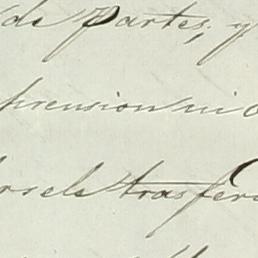 de Partes, y
prension ni o
rsele trasfer